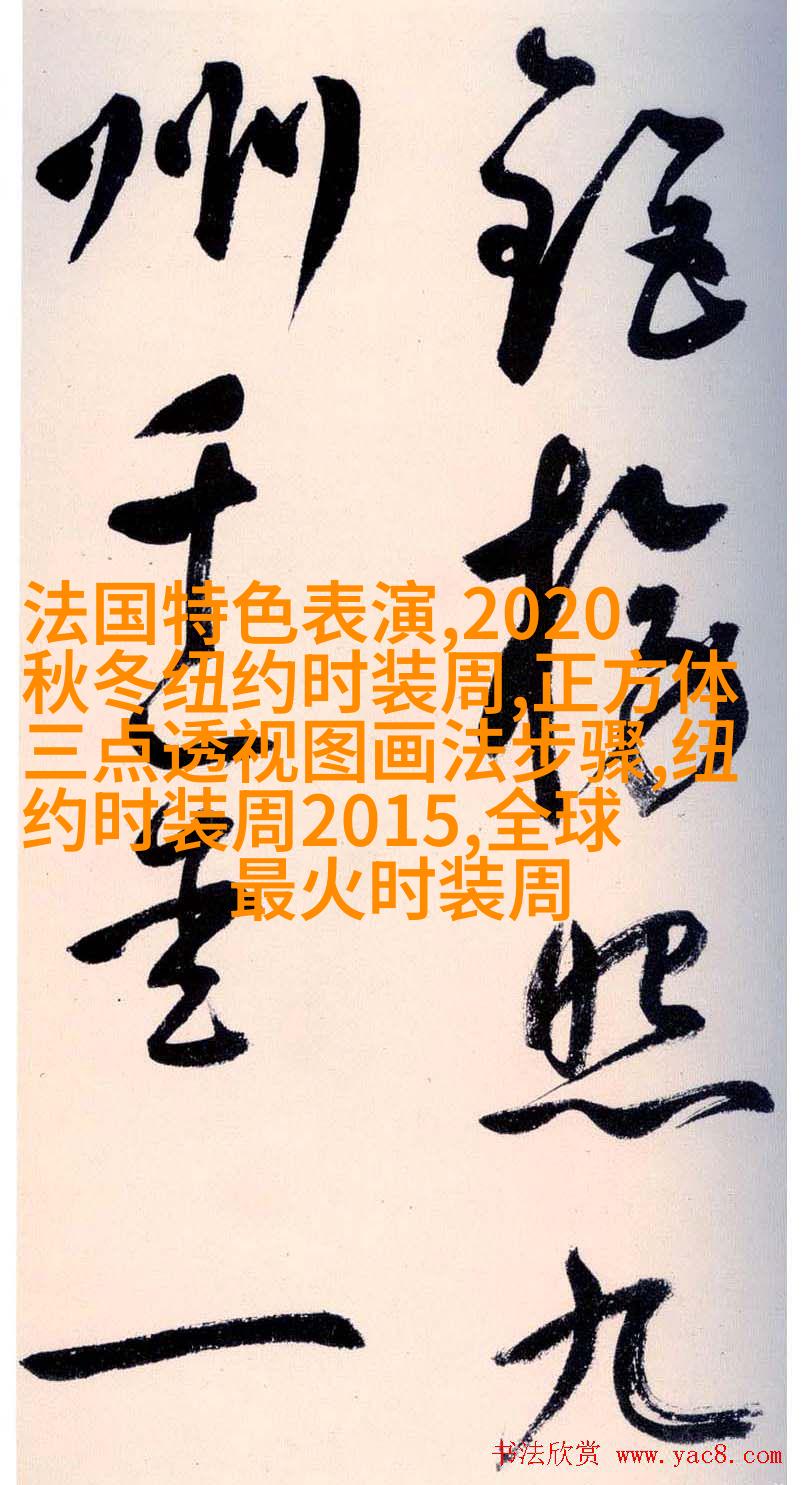 照九
州千一
法国特色表演,2020
秋冬纽约时装周,正方体
三点透视图画法步骤,纽
约时装周2015,全球
最火时装周
书法欣赏 www.yac8.com